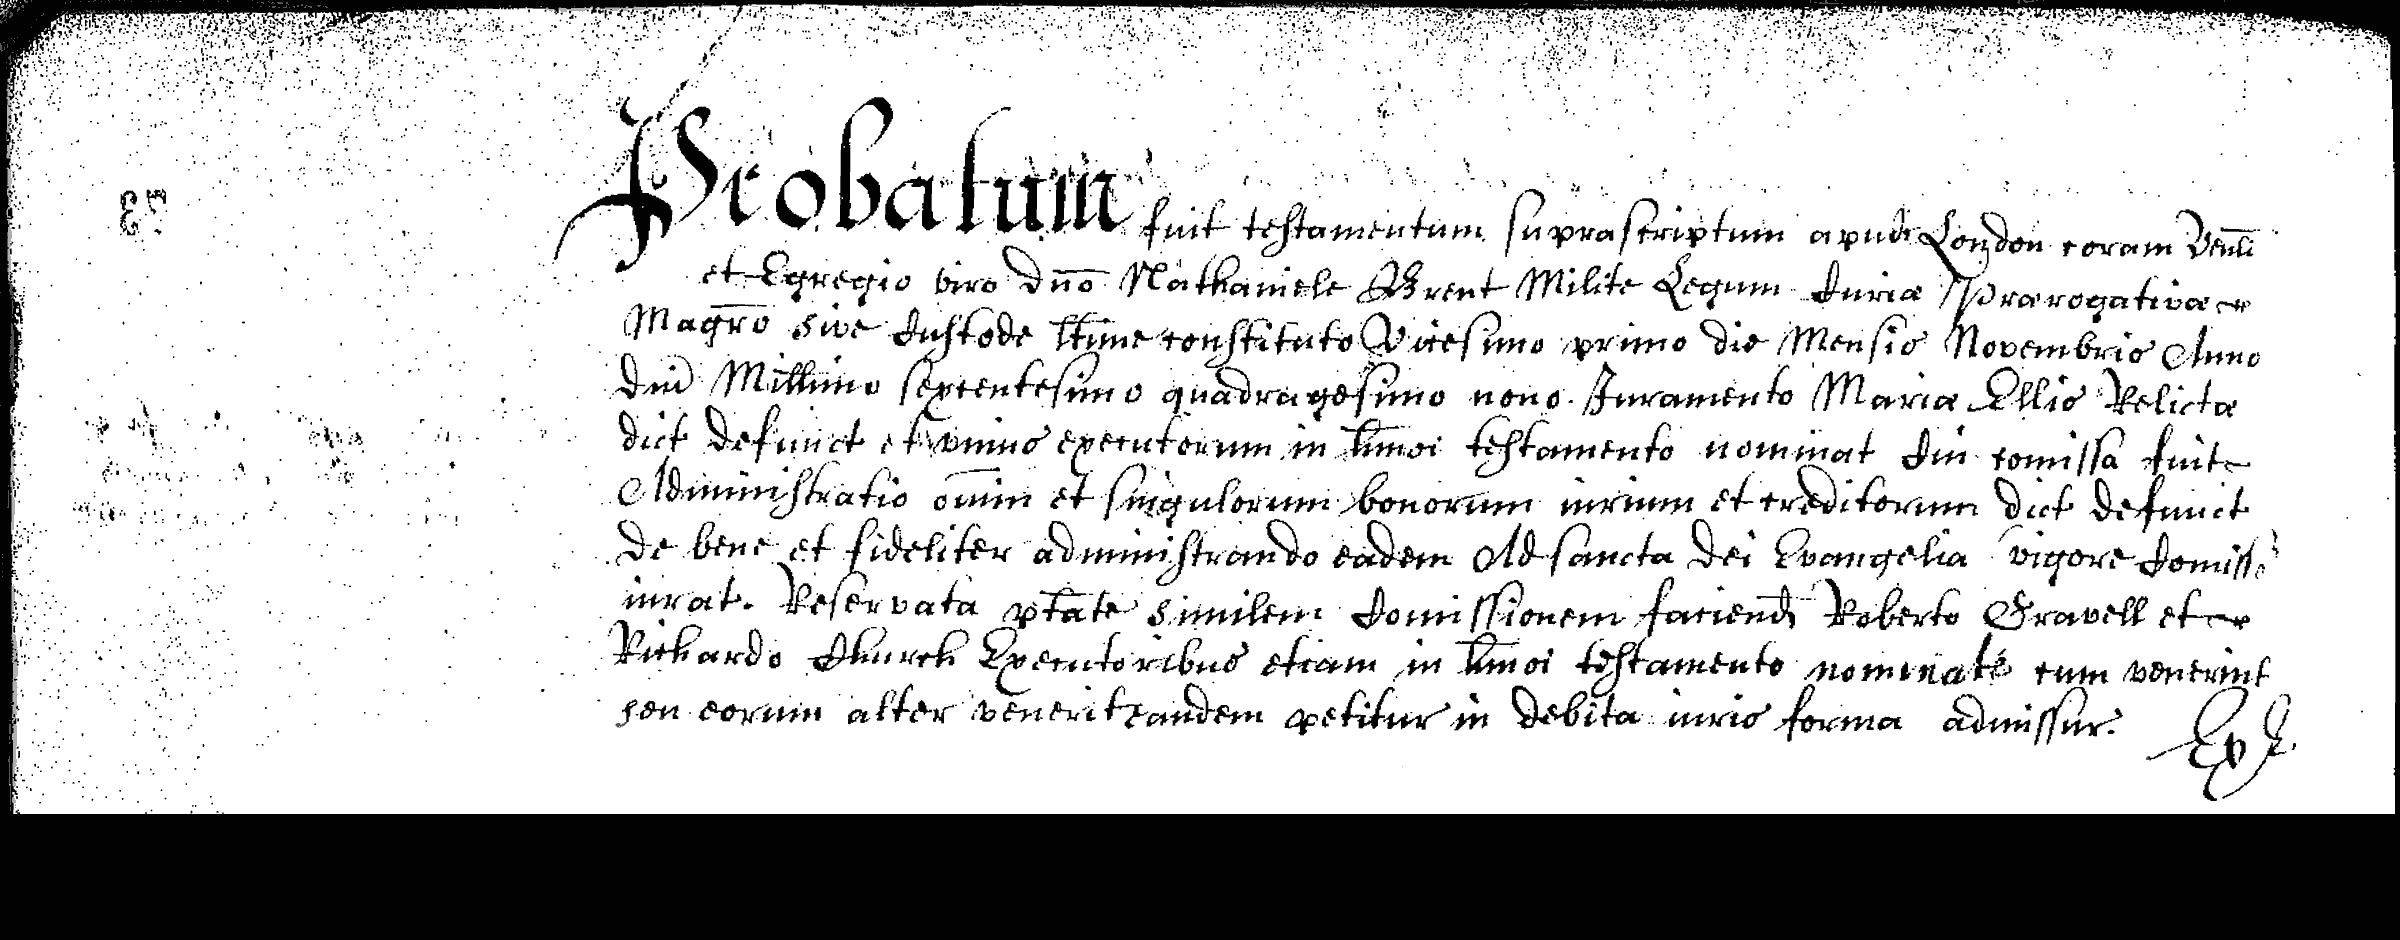 Probatum fuit testamentum suprascriptum apud London coram Venli
et Egregio viro Dno Nathaniele Brent Milite Legum Curiæ Prærogativæ
Magro sive Custode ltime constituto Vicesimo primo die Mensis Novembris Anno
Dni Millimo sexcentesimo quadragesimo nono. Juramento Mariæ Ellis Relictæ
dict defunct et unius executorum in hmoi testamento nominat Cui comissa fuit
Administratio omin et singulorum bonorum iurium et creditorum dict defunct
De bene et fideliter administrando eadem Ad sancta Dei Evangelia vigore Comiss
iurat. Reservata ptate similem Comissionem faciend Roberto Gravell et
Richardo Church Executoribus etiam in hmoi testamento nominat cum venerint
seu eorum alter venerit eandem petitur in debita iuris forma admissur.